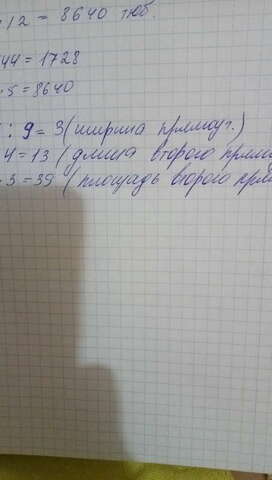 · 12 = 8640 тюб.
44 = 1728
· 5 = 8640
: 9 = 3 (ширина прямоуг.)
4 = 13 (длина второго прям
· 3 = 39 (площадь второго прям